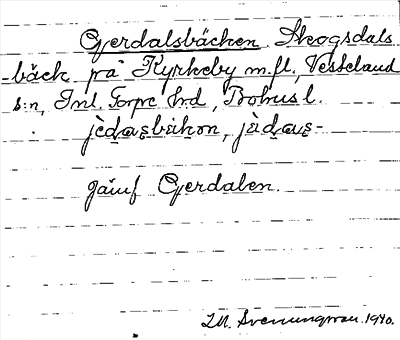 Gjerdalsbäcken Skogsdals
-bäck på Kyrkeby m.fl., Vesteland
s:n, Inl. Torpe hrd, Bohus l.
jèdaɐsbɛ̀kɷn, jùdaɐs-
jämf Gjerdalen.
I.M. Svenungsson. 1940.